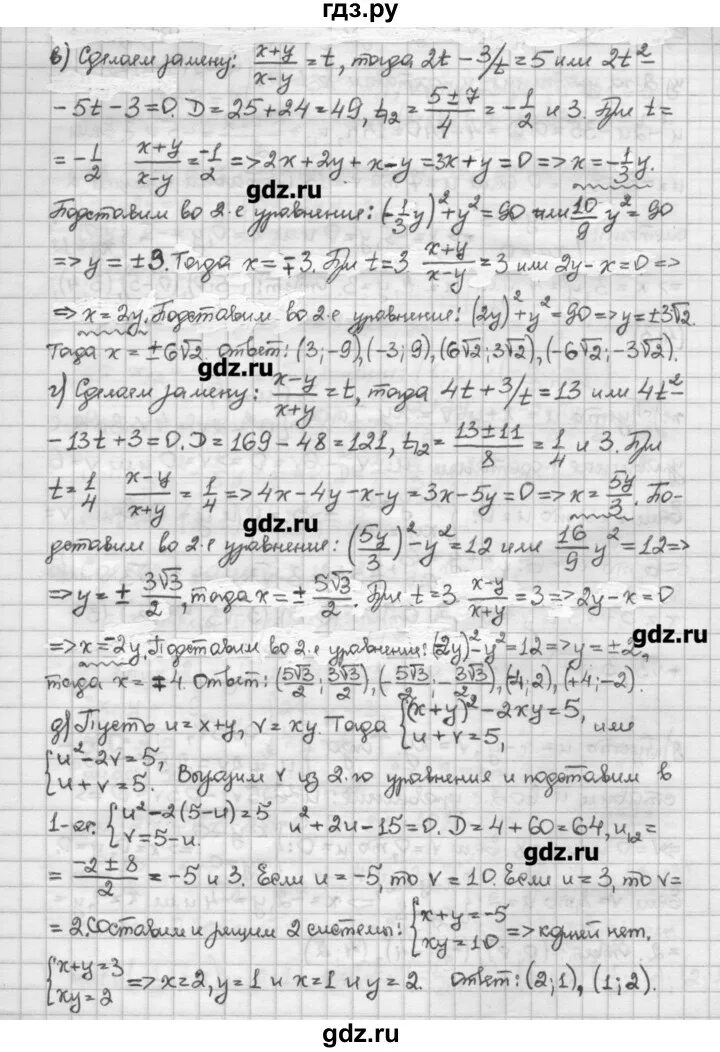 гдз.ру
в) Сделаем замену: (x+y)/(x-y) = t, тогда 2t - 3/t = 5 или 2t² -
- 5t - 3 = 0. D = 25 + 24 = 49, t₁₂ = (5±7)/4 = -1/2 и 3. При t =
= -1/2 (x+y)/(x-y) = -1/2 => 2x + 2y + x - y = 3x + y = 0 => x = -1/3 y.
gdz.ru
Подставим во 2-е уравнение: (-1/3 y)² + y² = 90 или 10/9 y² = 90
=> y = ±9. Тогда x = ∓3. При t = 3 (x+y)/(x-y) = 3 или 2y - x = 0 =>
gdz.ru
=> x = 2y. Подставим во 2-е уравнение: (2y)² + y² = 90 => y = ±3√2.
Тогда x = ±6√2. Ответ: (3; -9), (-3; 9), (6√2; 3√2), (-6√2; -3√2).
gdz.ru
г) Сделаем замену: (x-y)/(x+y) = t, тогда 4t + 3/t = 13 или 4t² -
- 13t + 3 = 0. D = 169 - 48 = 121, t₁₂ = (13±11)/8 = 1/4 и 3. При
t = 1/4 (x-y)/(x+y) = 1/4 => 4x - 4y - x - y = 3x - 5y = 0 => x = 5y/3. По-
gdz.ru
дставим во 2-е уравнение: (5y/3)² - y² = 12 или 16/9 y² = 12 =>
=> y = ± 3√3/2, тогда x = ± 5√3/2. При t = 3 (x-y)/(x+y) = 3 => 2y - x = 0
gdz.ru
=> x = -2y. Подставим во 2-е уравнение: (2y)² - y² = 12 => y = ±2,
тогда x = ∓4. Ответ: (5√3/2; 3√3/2), (-5√3/2; -3√3/2), (-4; 2), (+4; -2).
д) Пусть u = x+y, v = xy. Тогда {(x+y)² - 2xy = 5, u + v = 5, или
{u² - 2v = 5, u + v = 5. Выразим v из 2-го уравнения и подставим в
1-ое: {u² - 2(5-u) = 5 v = 5 - u. u² + 2u - 15 = 0. D = 4 + 60 = 64, u₁₂ =
gdz.ru
= (-2±8)/2 = -5 и 3. Если u = -5, то v = 10. Если u = 3, то v =
= 2. Составим и решим 2 системы: {x+y = -5 xy = 10 => корней нет.
{x+y = 3 xy = 2 => x = 2, y = 1 и x = 1 и y = 2. Ответ: (2; 1), (1; 2).
gdz.ru
gdz.ru